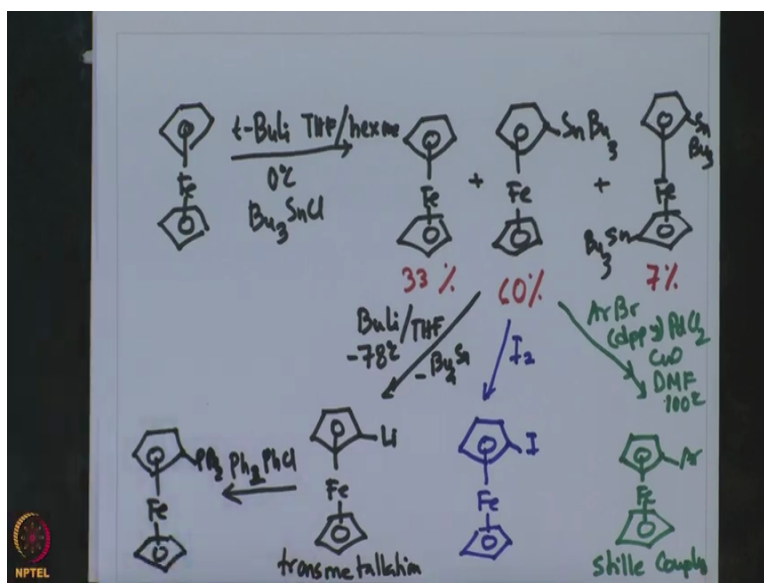 t-BuLi THF/hexane
0℃
Bu3SnCl
Fe
Fe
+
SnBu3
Fe
+
Sn
Bu3
Fe
Bu3Sn
33%
60%
7%
BuLi/THF
-78℃
-Bu4Sn
I2
ArBr
(dppf)PdCl2
CuO
DMF
100℃
PPh2
Fe
Ph2PhCl
Li
Fe
transmetallation
I
Fe
Ar
Fe
Stille Coupling
NPTEL